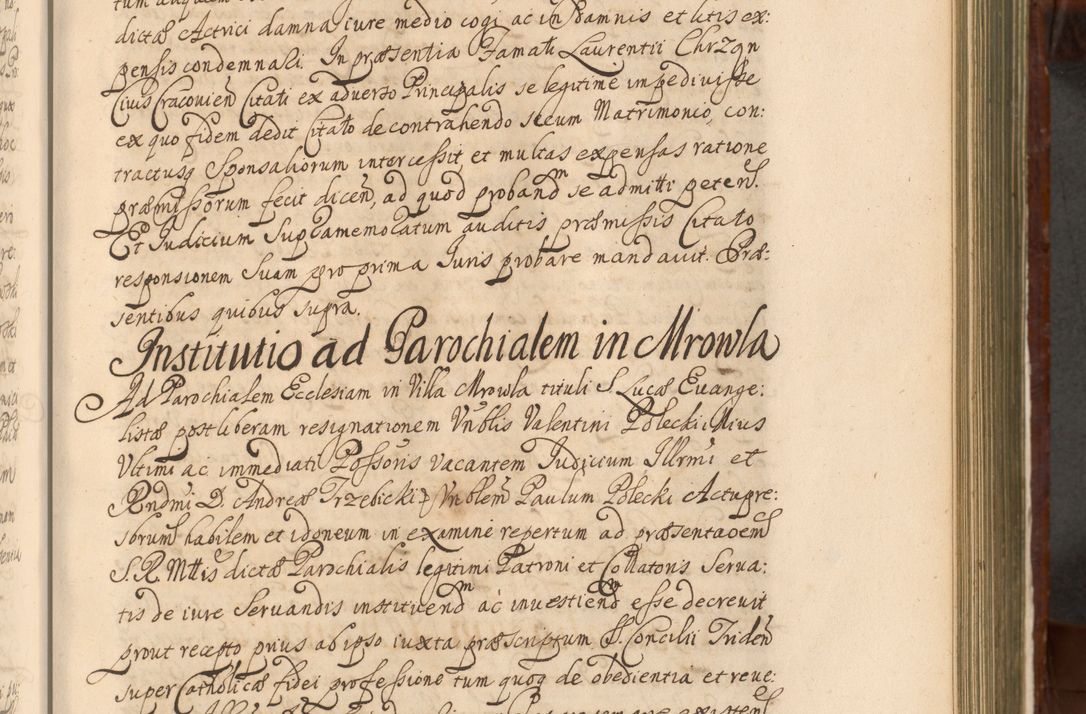 dictæ Actrici damna iure medio cogi ac in damnis et litis ex:
pensis condemnali. In præsentia Famati Laurentii Chrzqn
Civis Cracovien̄ Citati ex adverso Principalis se legitime impedivisse
ex quo fidem dedit Citato de contrahendo secum Matrimonio, con:
tractusq Sponsaliorum intercessit et multas expensas ratione
præmissorum fecit dicen̄, ad quod proband se admitti peten.
Et Iudicium Supramemoratum auditis præmissis Citato
responsionem Suam pro prima Iuris probare mandavit. Præ:
sentibus quibus supra.
Institutio ad Parochialem in Mrowla
Ad Parochialem Ecclesiam in Villa Mrowla tituli S. Lucæ Evange:
listæ post liberam resignationem Vnblis Valentini Polecki illius
Vltimi ac immediati Possoris vacantem Iudicium Illrmi et
Rndmi D. Andreæ Trzebicki Vnblem Paulum Polecki Actu pre:
sbrum habilem et idoneum in examine repertum ad præsentaōem
S. R. Mttis dictæ Parochialis legitimi Patroni et Collatoris Serva:
tis de iure Servandis instituend ac investiend esse decrevit
prout recepto prius ab ipso iuxta præscriptum S. Concilii Triden̄
super Catholicæ fidei professione tum quoq de obedientia et reve: